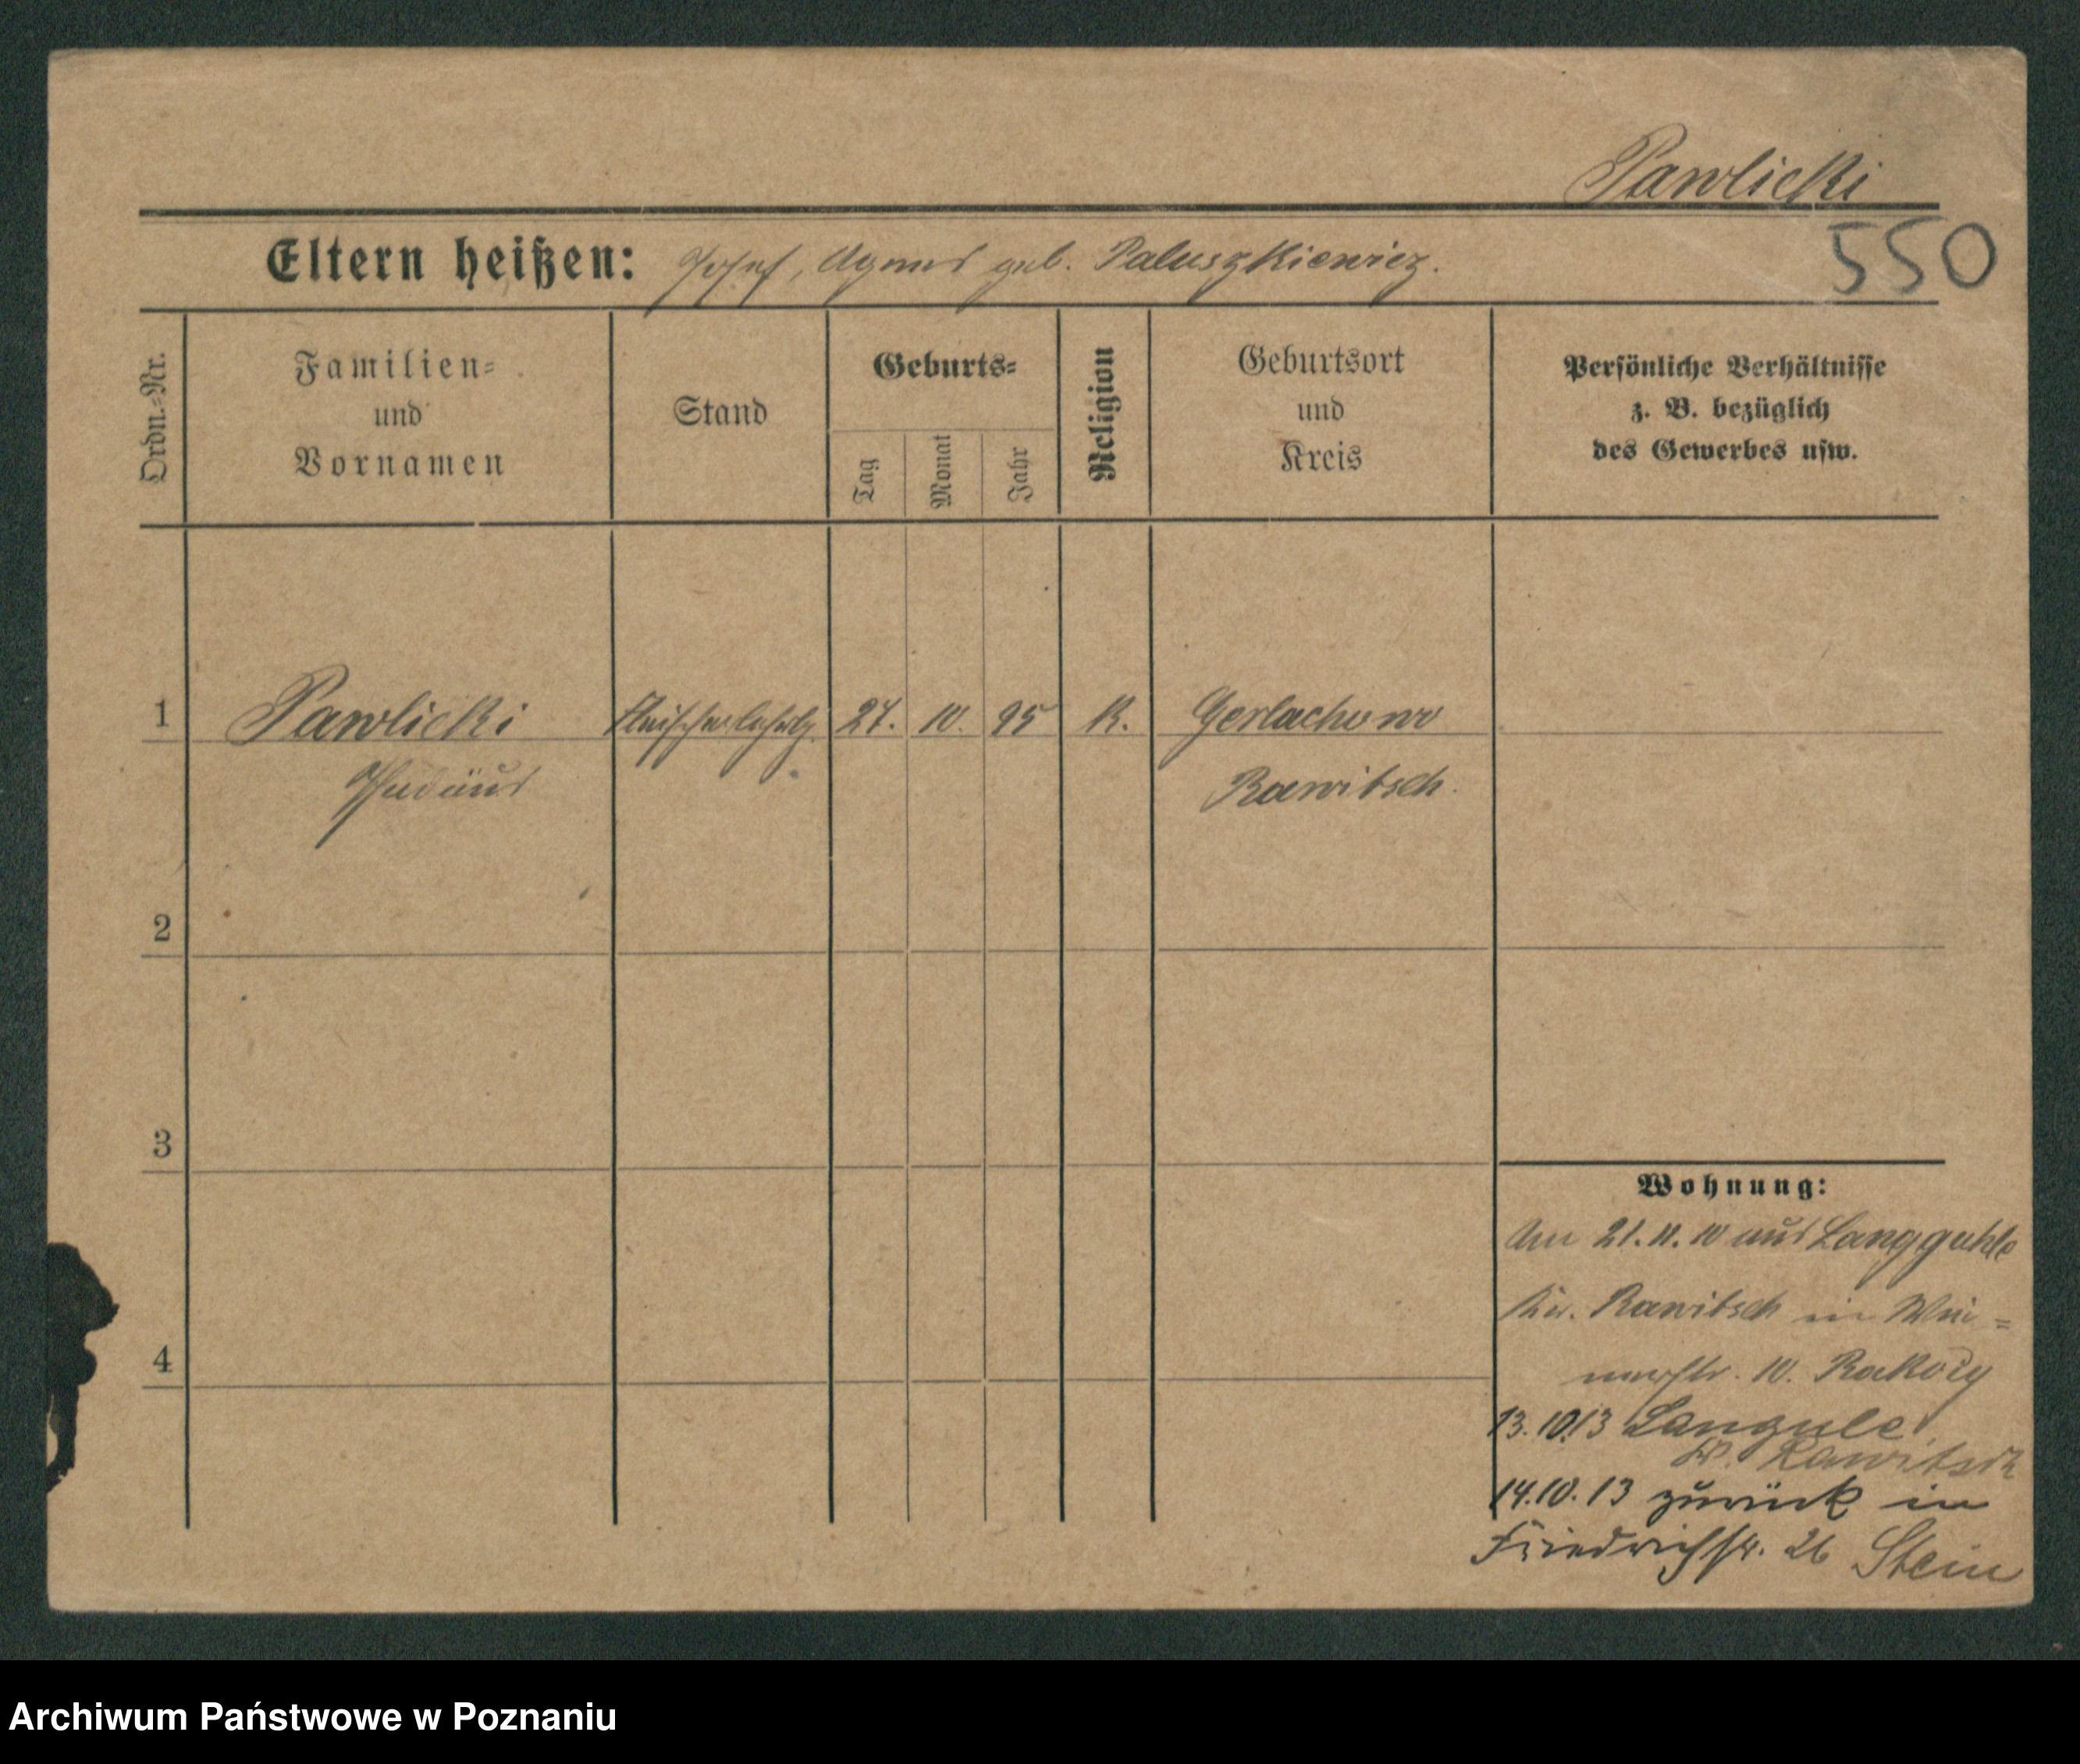 Pawlicki
550
Eltern heißen: Josef, Agnes geb. Paluszkiewicz.
Ordn.=Nr.
Familien=
und
Vornamen
Stand
Geburts=
Tag
Monat
Jahr
Religion
Geburtsort
und
Kreis
Persönliche Verhältnisse
z. B. bezüglich
des Gewerbes usw.
1 Pawlicki Fleischerlehrlg. 27. 10. 95 K. Gerlachowo
Rawitsch.
2
3
4
Wohnung:
Am 21.11.10 aus Langguhle
Kr. Rawitsch in
10.
13.10.13 Langule
Kr. Rawitsch
14.10.13 zurück in
Friedrichstr. 26 Stein
Archiwum Państwowe w Poznaniu